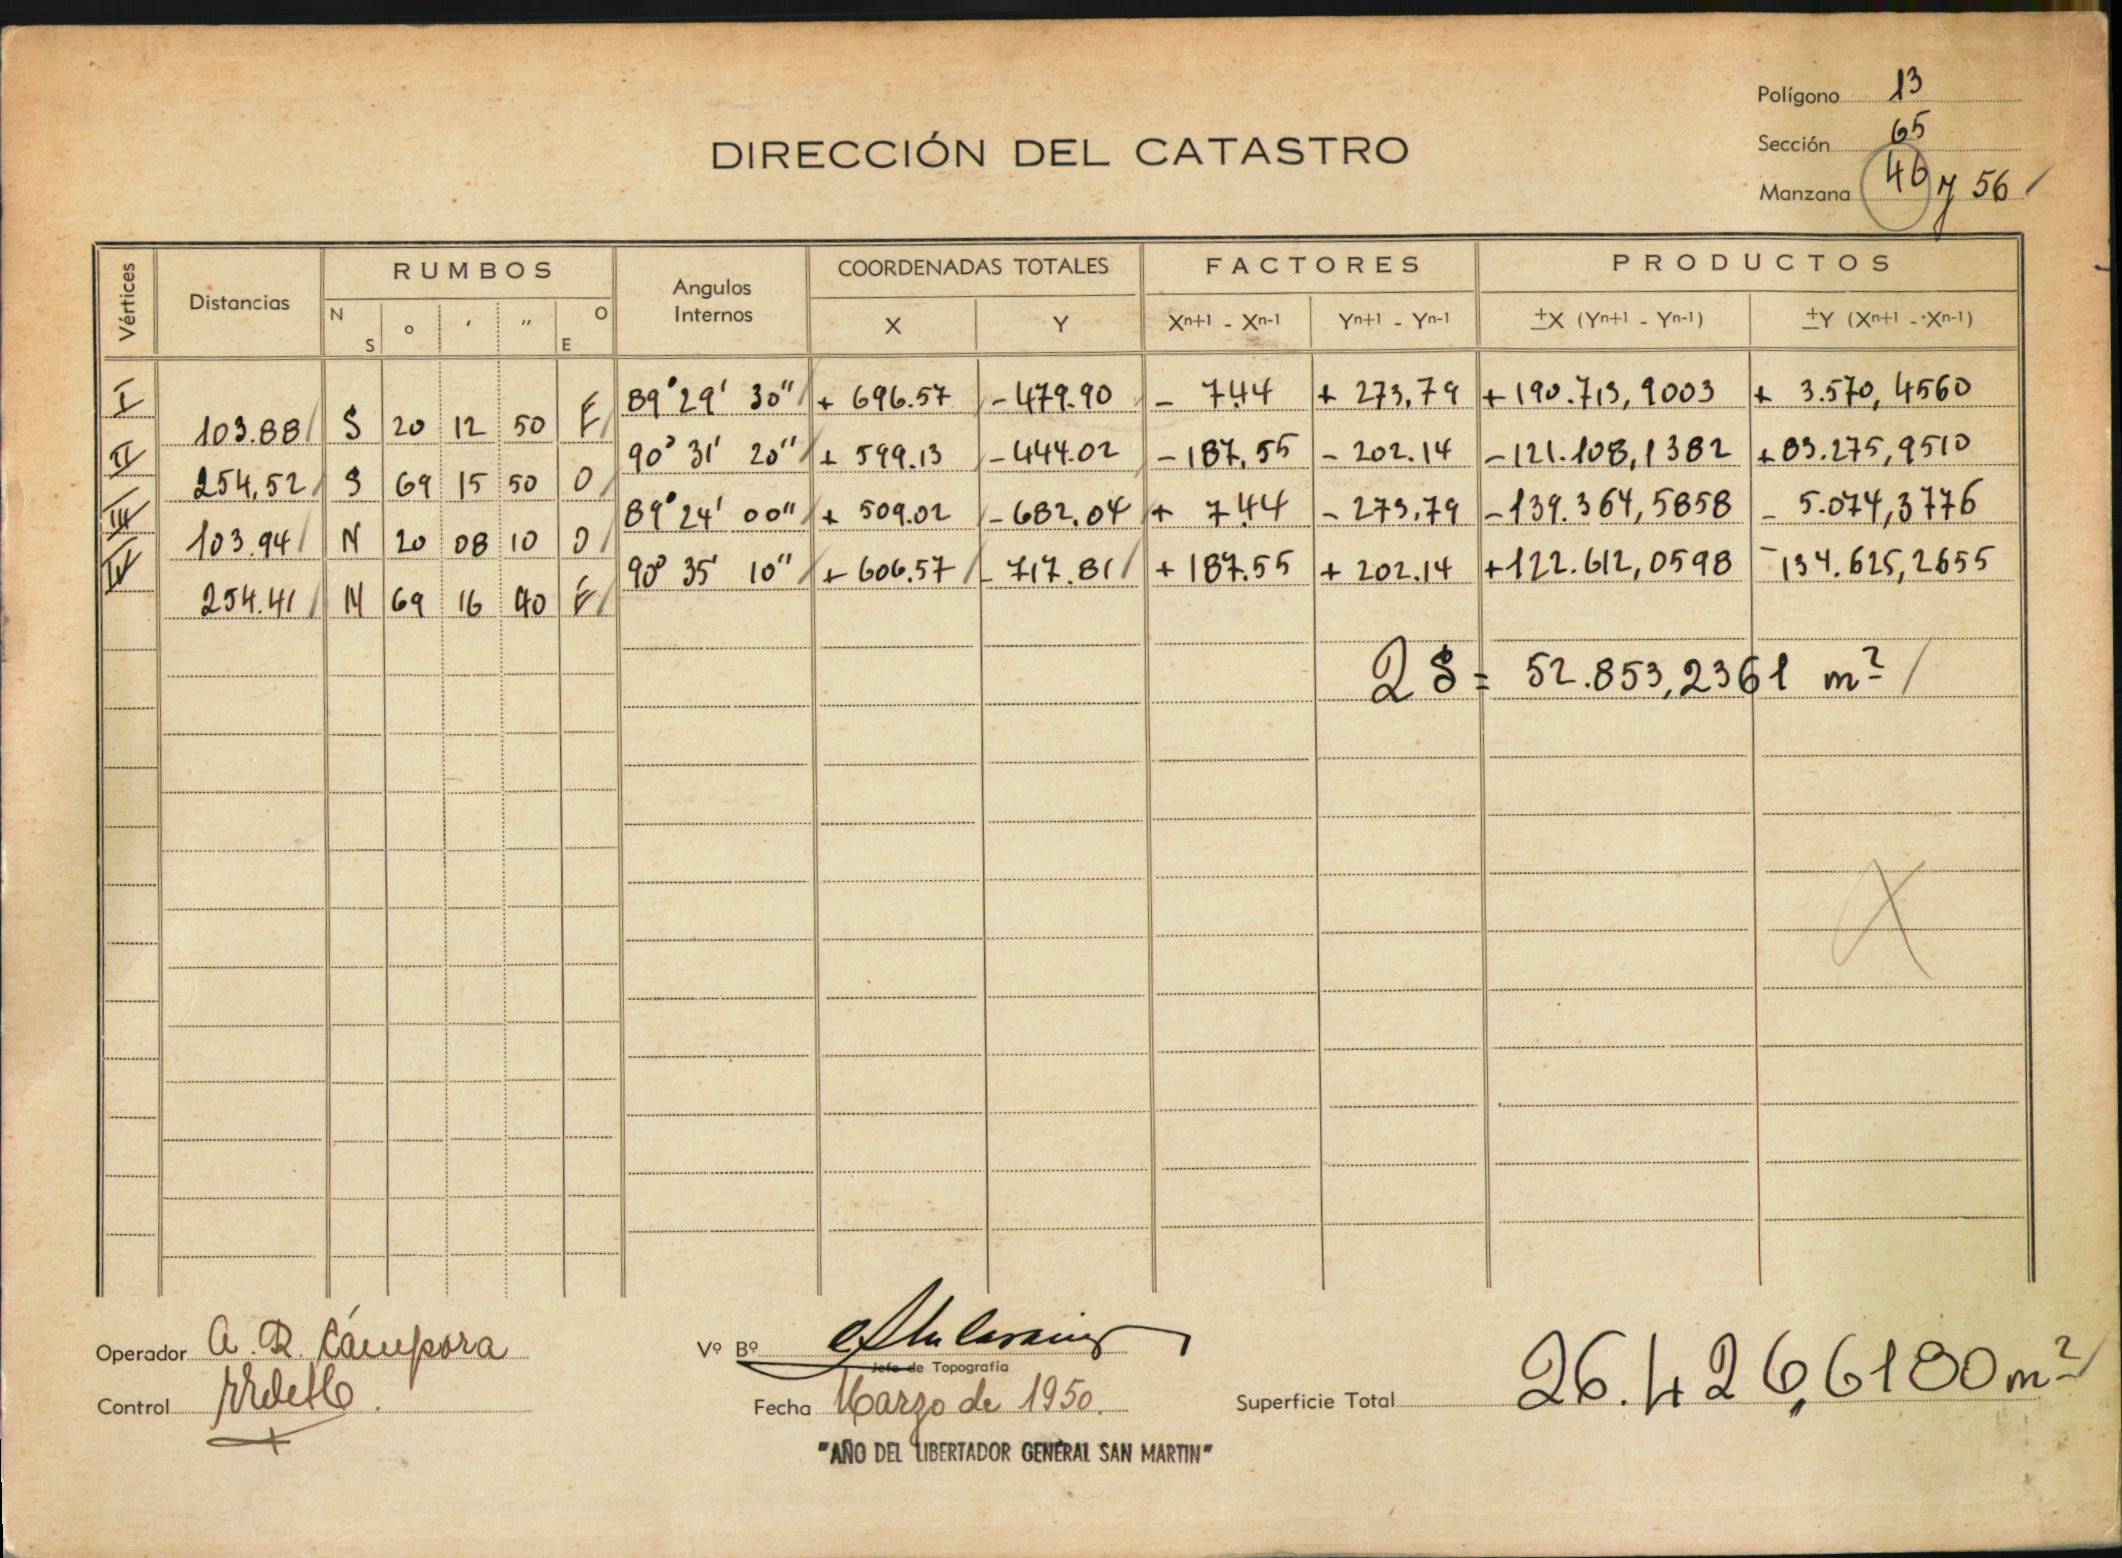 Polígono 13
Sección 65
Manzana 46 y 56
DIRECCIÓN DEL CATASTRO
Vértices Distancias RUMBOS Angulos Internos COORDENADAS TOTALES FACTORES PRODUCTOS
N S ° ′ ″ O E X Y Xⁿ⁺¹ - Xⁿ⁻¹ Yⁿ⁺¹ - Yⁿ⁻¹ ±X (Yⁿ⁺¹ - Yⁿ⁻¹) ±Y (Xⁿ⁺¹ - Xⁿ⁻¹)
I 89° 29' 30" + 696.57 - 479.90 - 7.44 + 273,79 + 190.713,9003 + 3.570,4560
103.88 S 20 12 50 E
II 90° 31' 20" + 599.13 - 444.02 - 187,55 - 202.14 - 121.108,1382 + 83.275,9510
254,52 S 69 15 50 O
III 89° 24' 00" + 509.02 - 682.04 + 7.44 - 273,79 - 139.364,5858 - 5.074,3776
103.94 N 20 08 10 O
IV 90° 35' 10" + 606.57 - 717.81 + 187.55 + 202.14 + 122.612,0598 - 134.625,2655
254.41 N 69 16 40 E
2 S = 52.853,2361 m²
Operador A. R. Cámpora
Vº Bº
Jefe de Topografía
Control
Fecha Marzo de 1950.
Superficie Total 26.426,6180 m²
"AÑO DEL LIBERTADOR GENERAL SAN MARTIN"